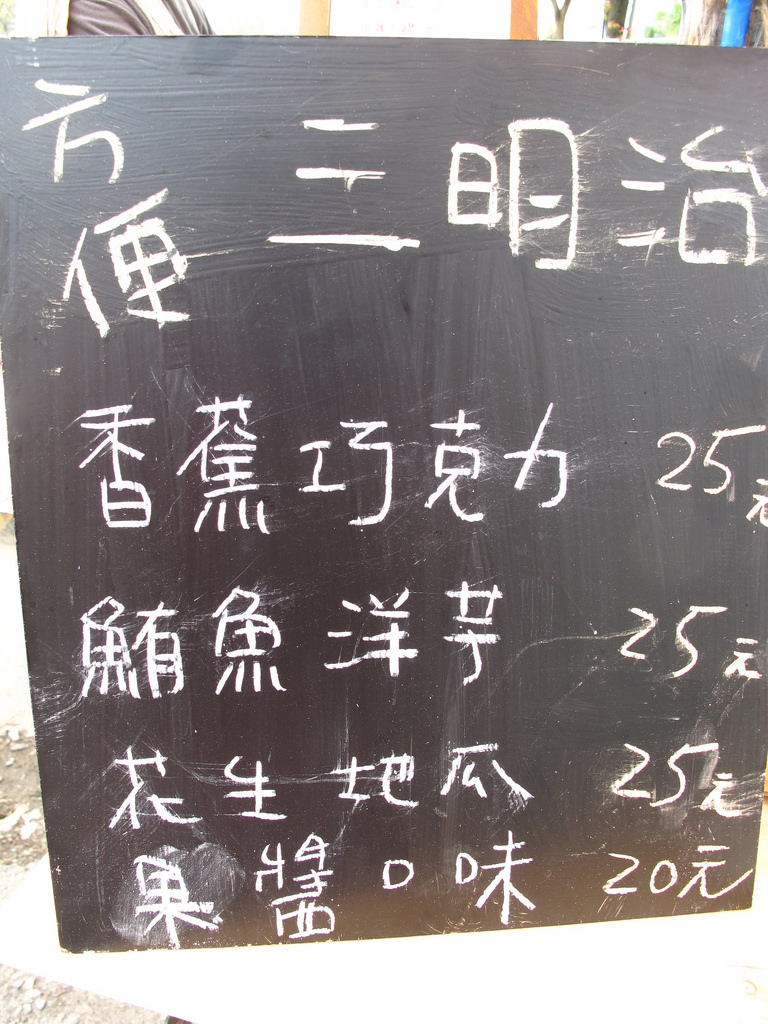 方便 三明治
香蕉巧克力 25元
鮪魚洋芋 25元
花生地瓜 25元
果醬口味 20元